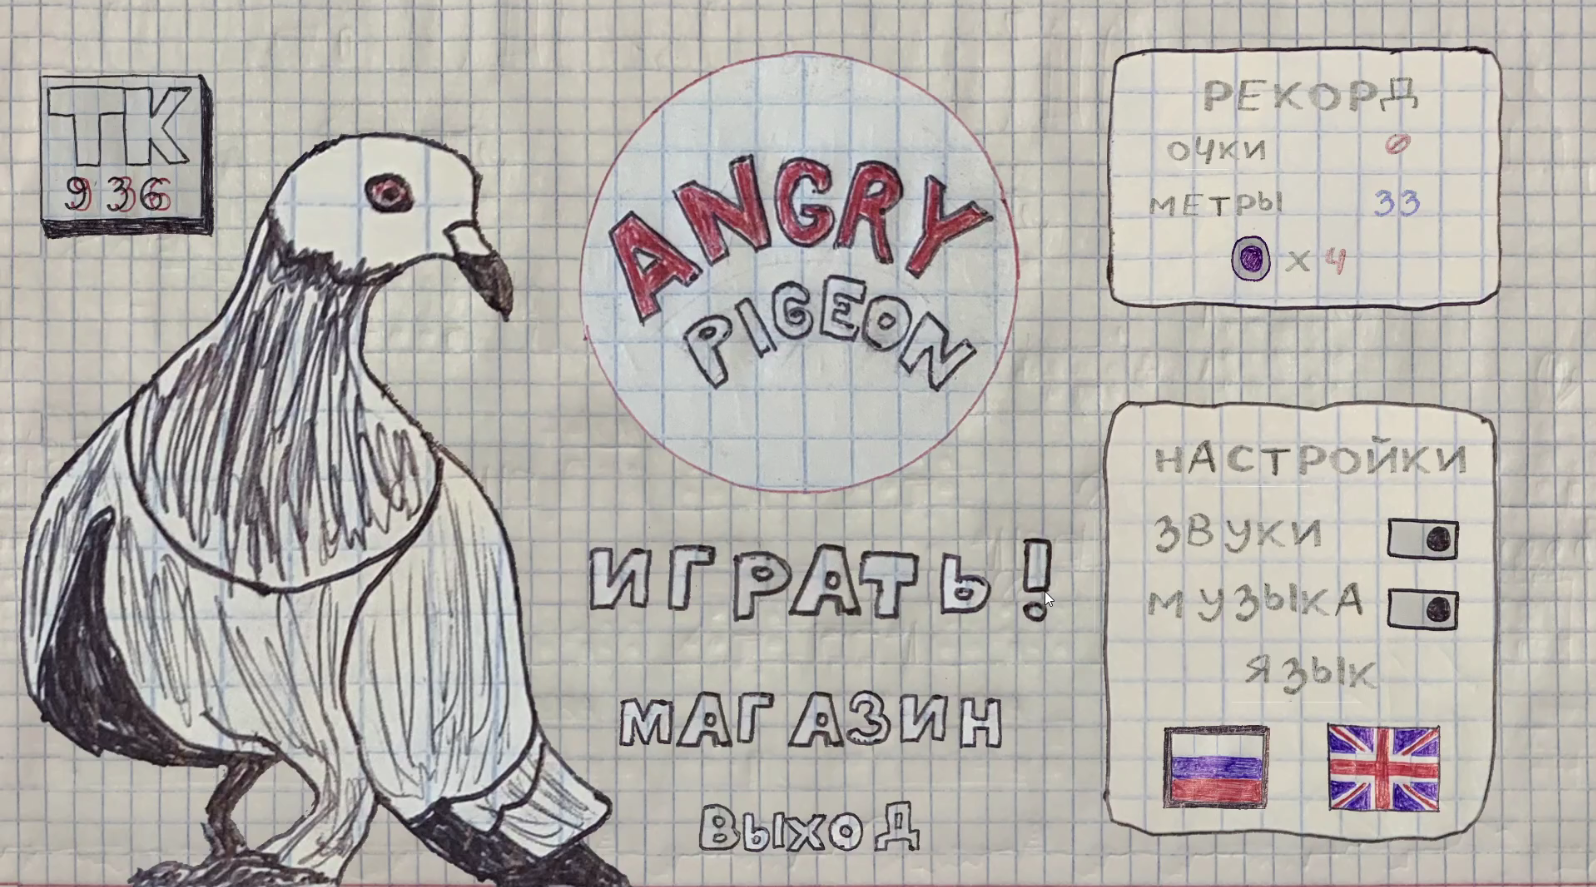 ТК
936
ANGRY
PIGEON
ИГРАТЬ!
МАГАЗИН
ВЫХОД
РЕКОРД
ОЧКИ 0
МЕТРЫ 33
x 4
НАСТРОЙКИ
ЗВУКИ
МУЗЫКА
ЯЗЫК